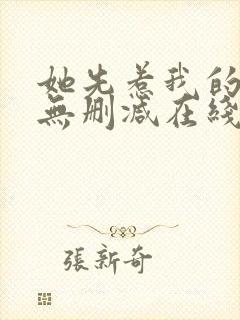 她先惹我的
無刪减在綫
張新奇